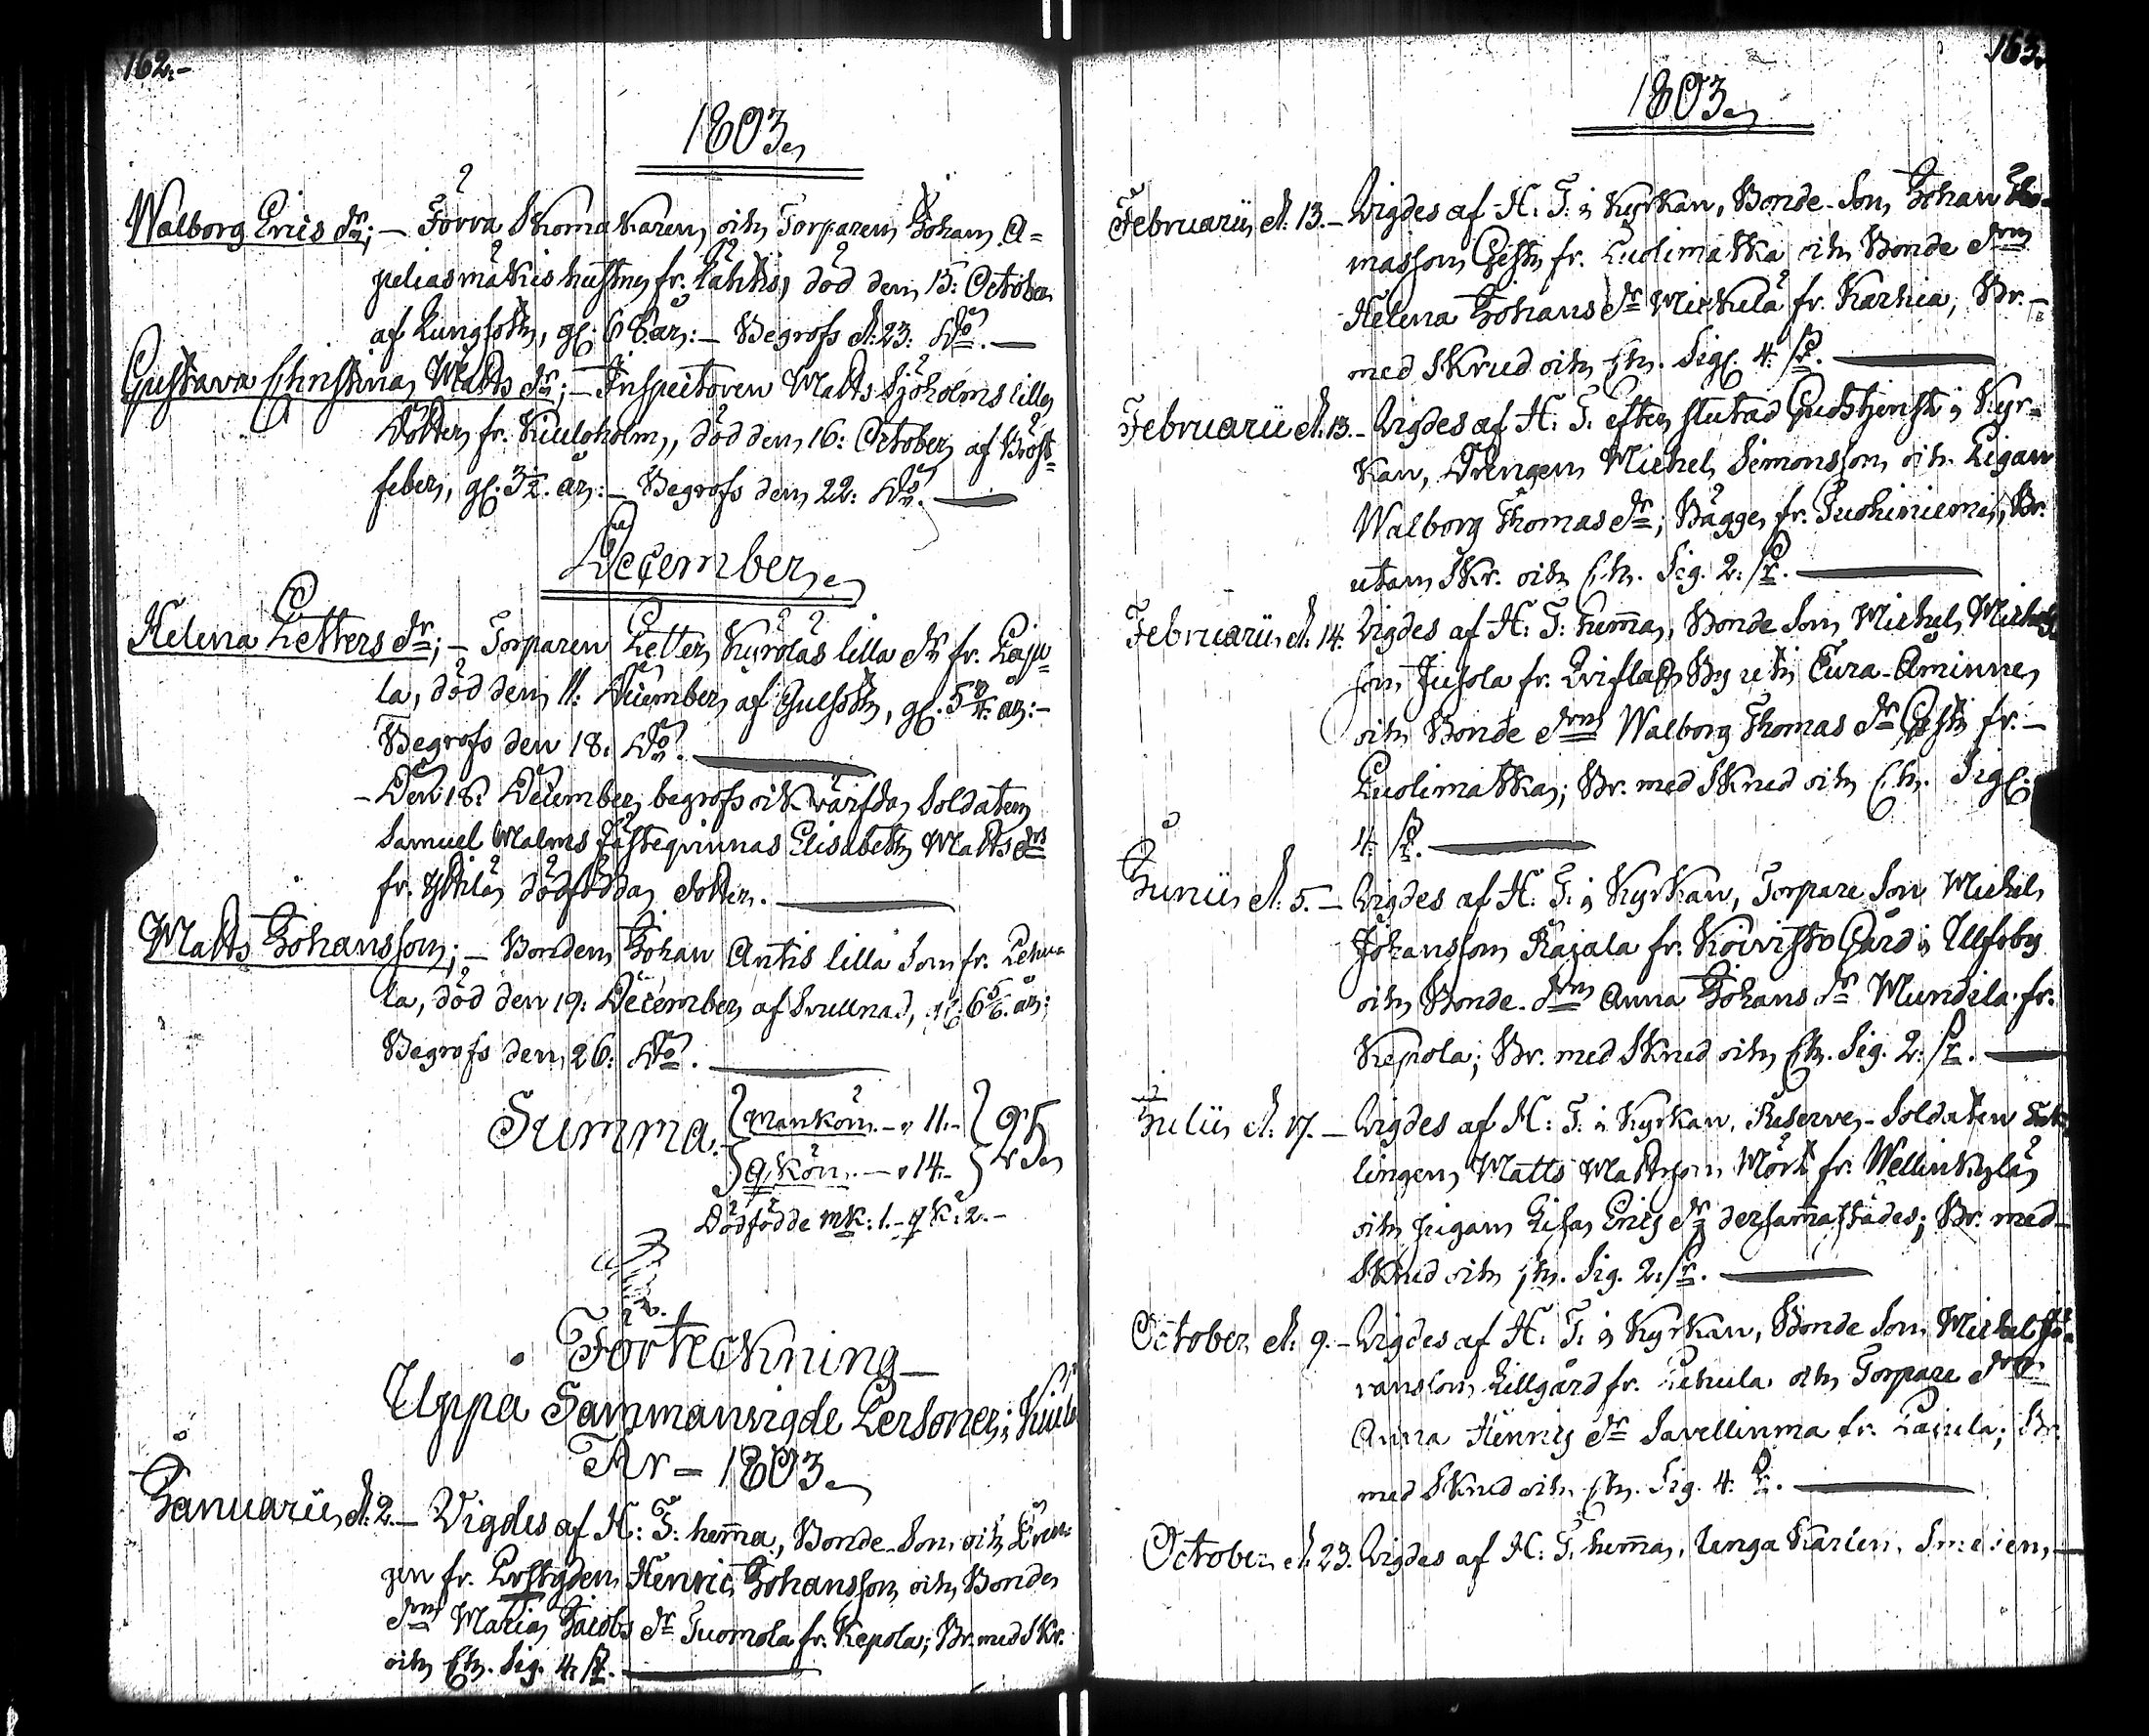 162.-
1803.
Walborg Erics dr; — Förra Skomakaren och Torparen Johan A=
peliasmäkis hustru fr. Lahtis, död den 15: October
af Lungsott, gl: 68. år: — Begrofs d. 23: do. —
Gustava Christina Matts dr; — Inspectoren Matts Sjöholms lilla
Dotter fr. Kuuloholm, död den 16: October af Bröst=
feber, gl. 3½. år: — Begrofs den 22: do. —
December.
Helena Petters dr; — Torparen Petter Kyrölas lilla dr fr. Laju=
la, död den 11: December af Gulsott, gl. 5¾. år: —
Begrofs den 18: do. —
— Den 18: December begrofs ock värfda Soldaten
Samuel Malms Fästeqvinnas Elisabeth Matts drs
fr. Yttilä dödfödda dotter. —
Matts Johansson; — Bonden Johan Antis lilla Son fr. Lehu=
la, död den 19: December af Svullnad, gl: 6 5/6. år:
Begrofs den 26: do. —
Summa. Mankön. — 11. —
qvkön. — 14. —
25
Dödfödde mk: 1. — qk: 2. —
Förteckning
Uppå Sammanvigde Personer i
År = 1803.
Januarii d. 2. — Vigdes af H: T: hemma, Bonde-Son och Drän=
gen fr. Henric Johansson och Bonde
drn Maria Jacobs dr Tuomola fr. Kepola; Br. med Skr.
och Ch. Sig. 4. Pr. —
163.
1803.
Februarii d. 13. — Vigdes af H: T: i Kyrkan, Bonde-Son Johan Tho=
masson Gest fr. Luolimatka och Bonde drn
Helena Johans dr Mickula fr. Karhia; Br. —
med Skrud och Ch. Sigl. 4: Pr. —
Februarii d. 13. — Vigdes af H: T: efter slutad Gudstjenst i Kyr=
kan, Drengen Michel Simonsson och Pigan
Walborg Thomas dr; Bägge fr. Puohiniemi; Br.
utan Skr. och Ch. Sig. 2: Pr. —
Februarii d. 14. Vigdes af H: T: hemma, Bonde Son Michel Michels=
son Jusola fr. By uti Eura-Åminne,
och Bonde drn Walborg Thomas dr Gest fr. —
Luolimatka; Br. med Skrud och Ch. Sigl:
4: Pr. —
Junii d. 5. — Vigdes af H: T: i Kyrkan, Torpare Son Michel
Johansson Rajala fr. Koivisto Gård i Ulfsby
och Bonde-drn Anna Johans dr Mundila fr.
Kepola; Br. med Skrud och Ch. Sig. 2: Pr. —
Julii d. 17. — Vigdes af H: T: i Kyrkan, Reserve-Soldaten Enk=
lingen Matts Mattsson Mörk fr. Wellinkylä
och Pigan Lisa Erics dr dersammastädes; Br. med
Skrud och Ch. Sig. 2: Pr. —
October d. 9. — Vigdes af H: T: i Kyrkan, Bonde Son Michel Gö=
ransson Lillgård fr. Lehula och Torpare drn
Anna Henrics dr Savellinma fr. Lajula; Br.
med Skrud och Ch. Sig. 4. Pr. —
October d. 23. Vigdes af H: T: hemma, Unga Karlen, Smeden, —